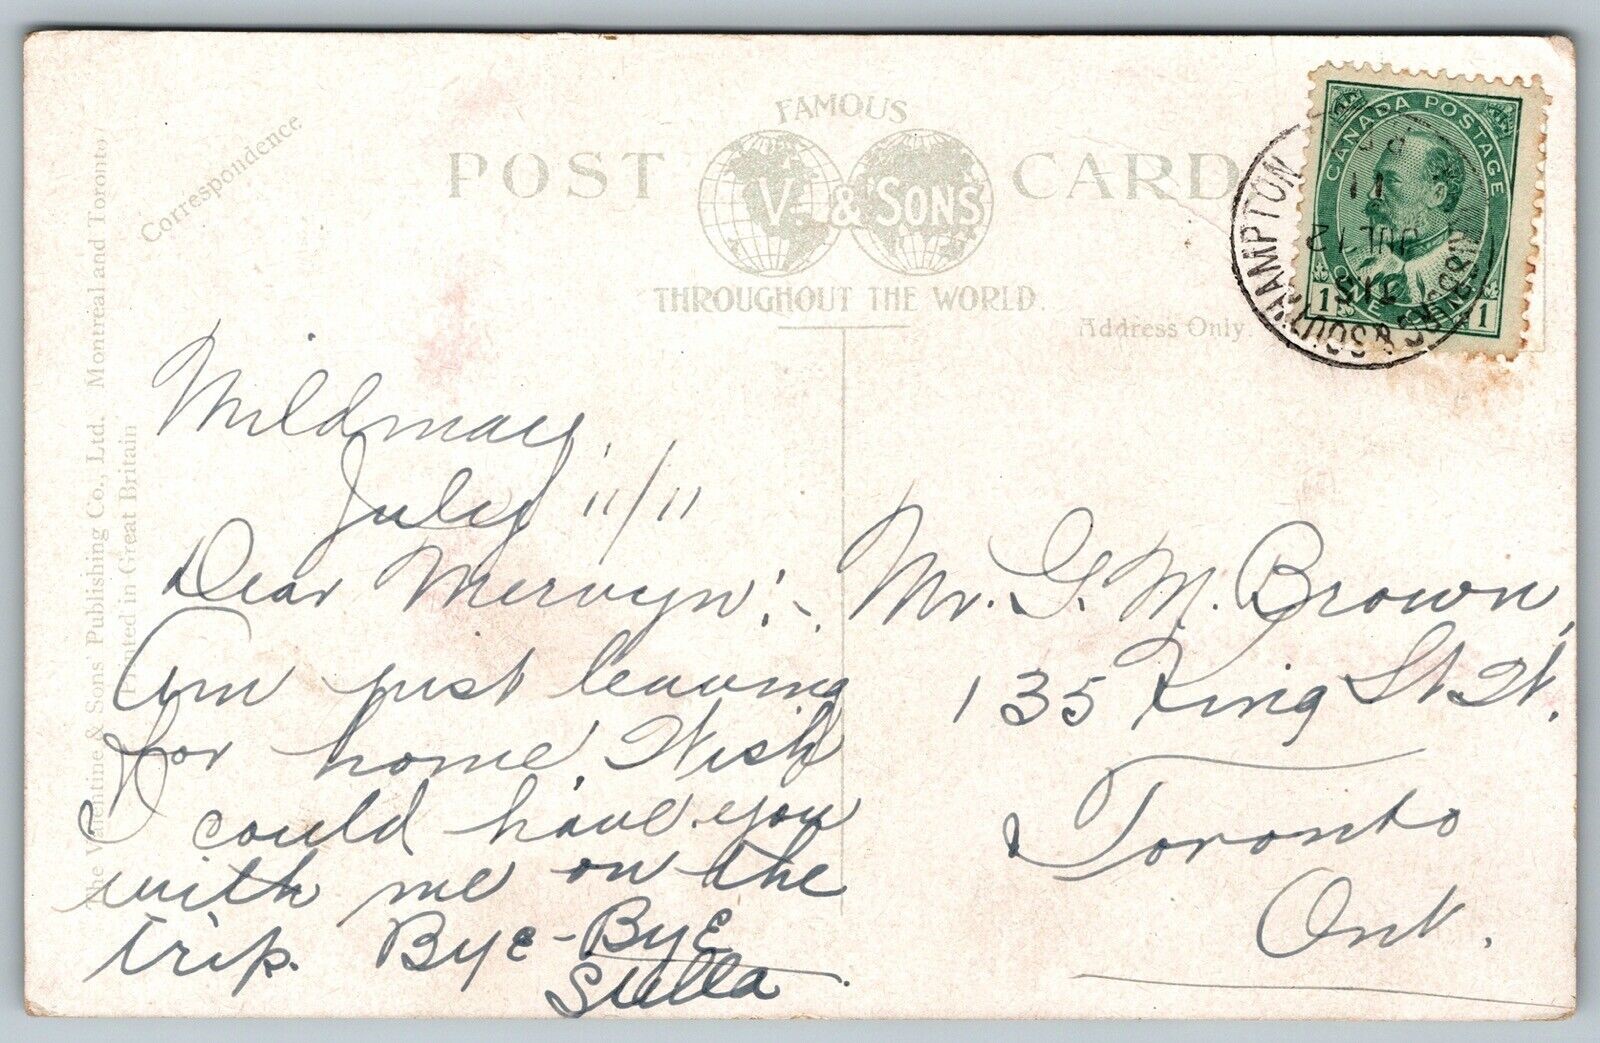 Correspondence
FAMOUS
POST CARD
V. & SONS
THROUGHOUT THE WORLD.
Address Only.
The Valentine & Sons Publishing Co., Ltd. Montreal and Toronto
Printed in Great Britain
CANADA POSTAGE
1 1
HAMPTON
JUL 12
11
Mildmay.
July 11/11
Dear Mervyn:-
Am just leaving
for home. Wish
I could have you
with me on the
trip. Bye-Bye
Stella.
Mr. G. M. Brown,
135 King St W.
Toronto
Ont.